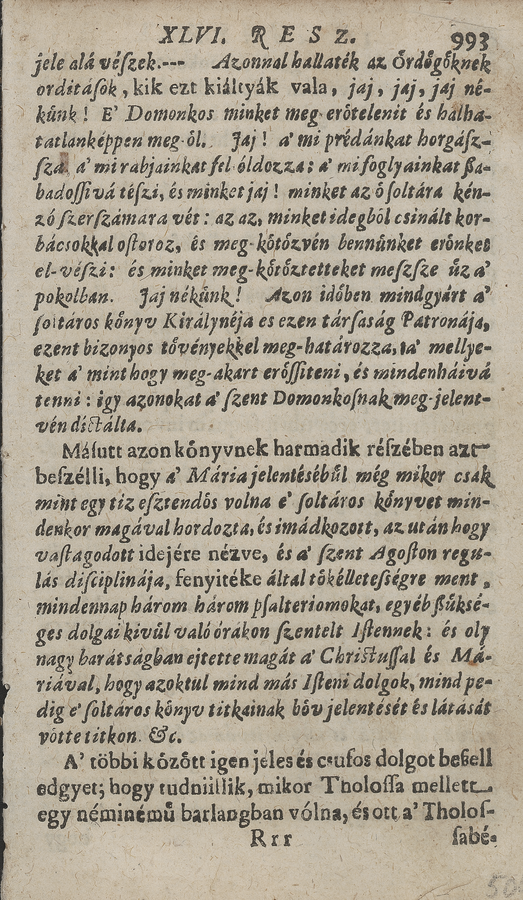 XLVI. RESZ. 993
jele alá véſzek.--- Azonnal hallaték az Ördőgőknek
orditáſok, kik ezt kiáltyák vala, jaj, jaj, jaj né-
kűnk! E' Domonkos minket meg-erőtelenit és halha-
tatlanképpen meg-öl. Jaj! a' mi prédánkat horgász-
ſza, a' mi rabjainkat fel-óldozza: a' mi foglyainkat ſza-
badoſſivá téſzi, és minket jaj! minket az ő ſoltára kén-
zó ſzerſzámara vét: az az, minket idegből csinált kor-
bácsokkal oſtoroz, és meg-kőtőzvén bennűnket erőnket
el-véſzi: és minket meg-kőtőztetteket meſzſze űz a'
pokolban. Jaj nékűnk! Azon időben mindgyárt a'
ſoltáros kőnyv Királynéja es ezen tárſaság Patronája,
ezent bizonyos tővényekkel meg-határozza, a' mellye-
ket a' mint hogy meg-akart erőſſiteni, és mindenháivá
tenni: igy azonokat a' ſzent Domonkoſnak meg-jelent-
vén dictálta.
Máſutt azon kőnyvnek harmadik réſzében azt
beſzélli, hogy a' Mária jelentéſébűl még mikor csak
mint egy tiz eſztendős volna e' ſoltáros kőnyvet min-
denkor magával hordozta, és imádkozott, az után hogy
vaſtagodott idejére nézve, és a' ſzent Agoſton regu-
lás diſciplinája, fenyitéke által tőkélleteſségre ment,
mindennap három három pſalteriomokat, egyéb ſzűksé-
ges dolgai kivűl való órákon ſzentelt Iſtennek: és oly
nagy barátságban ejtette magát a' Chriſtuſſal és Má-
riával, hogy azoktul mind más Iſteni dolgok, mind pe-
dig e' ſoltáros kőnyv titkainak bőv jelentését és látását
vőtte titkon. &c.
A' tőbbi kőzőtt igen jeles és csufos dolgot beſzell
edgyet; hogy tudniillik, mikor Tholoſſa mellett
egy néminémű barlangban vólna, és ott a' Tholoſ-
Rrr ſabé-
50